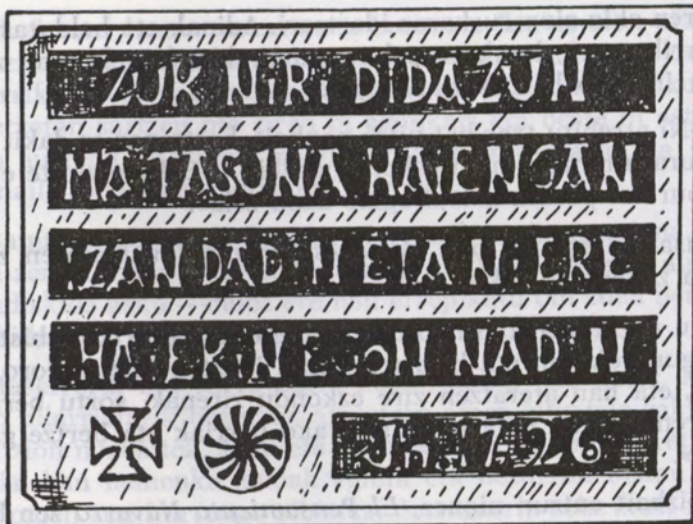 ZUK NiRi DiDAZUN
MAiTASUNA HAiENGAN
iZAN DADiN ETA Ni ERE
HAiEKiN EGON NADiN
Jn. 17,26